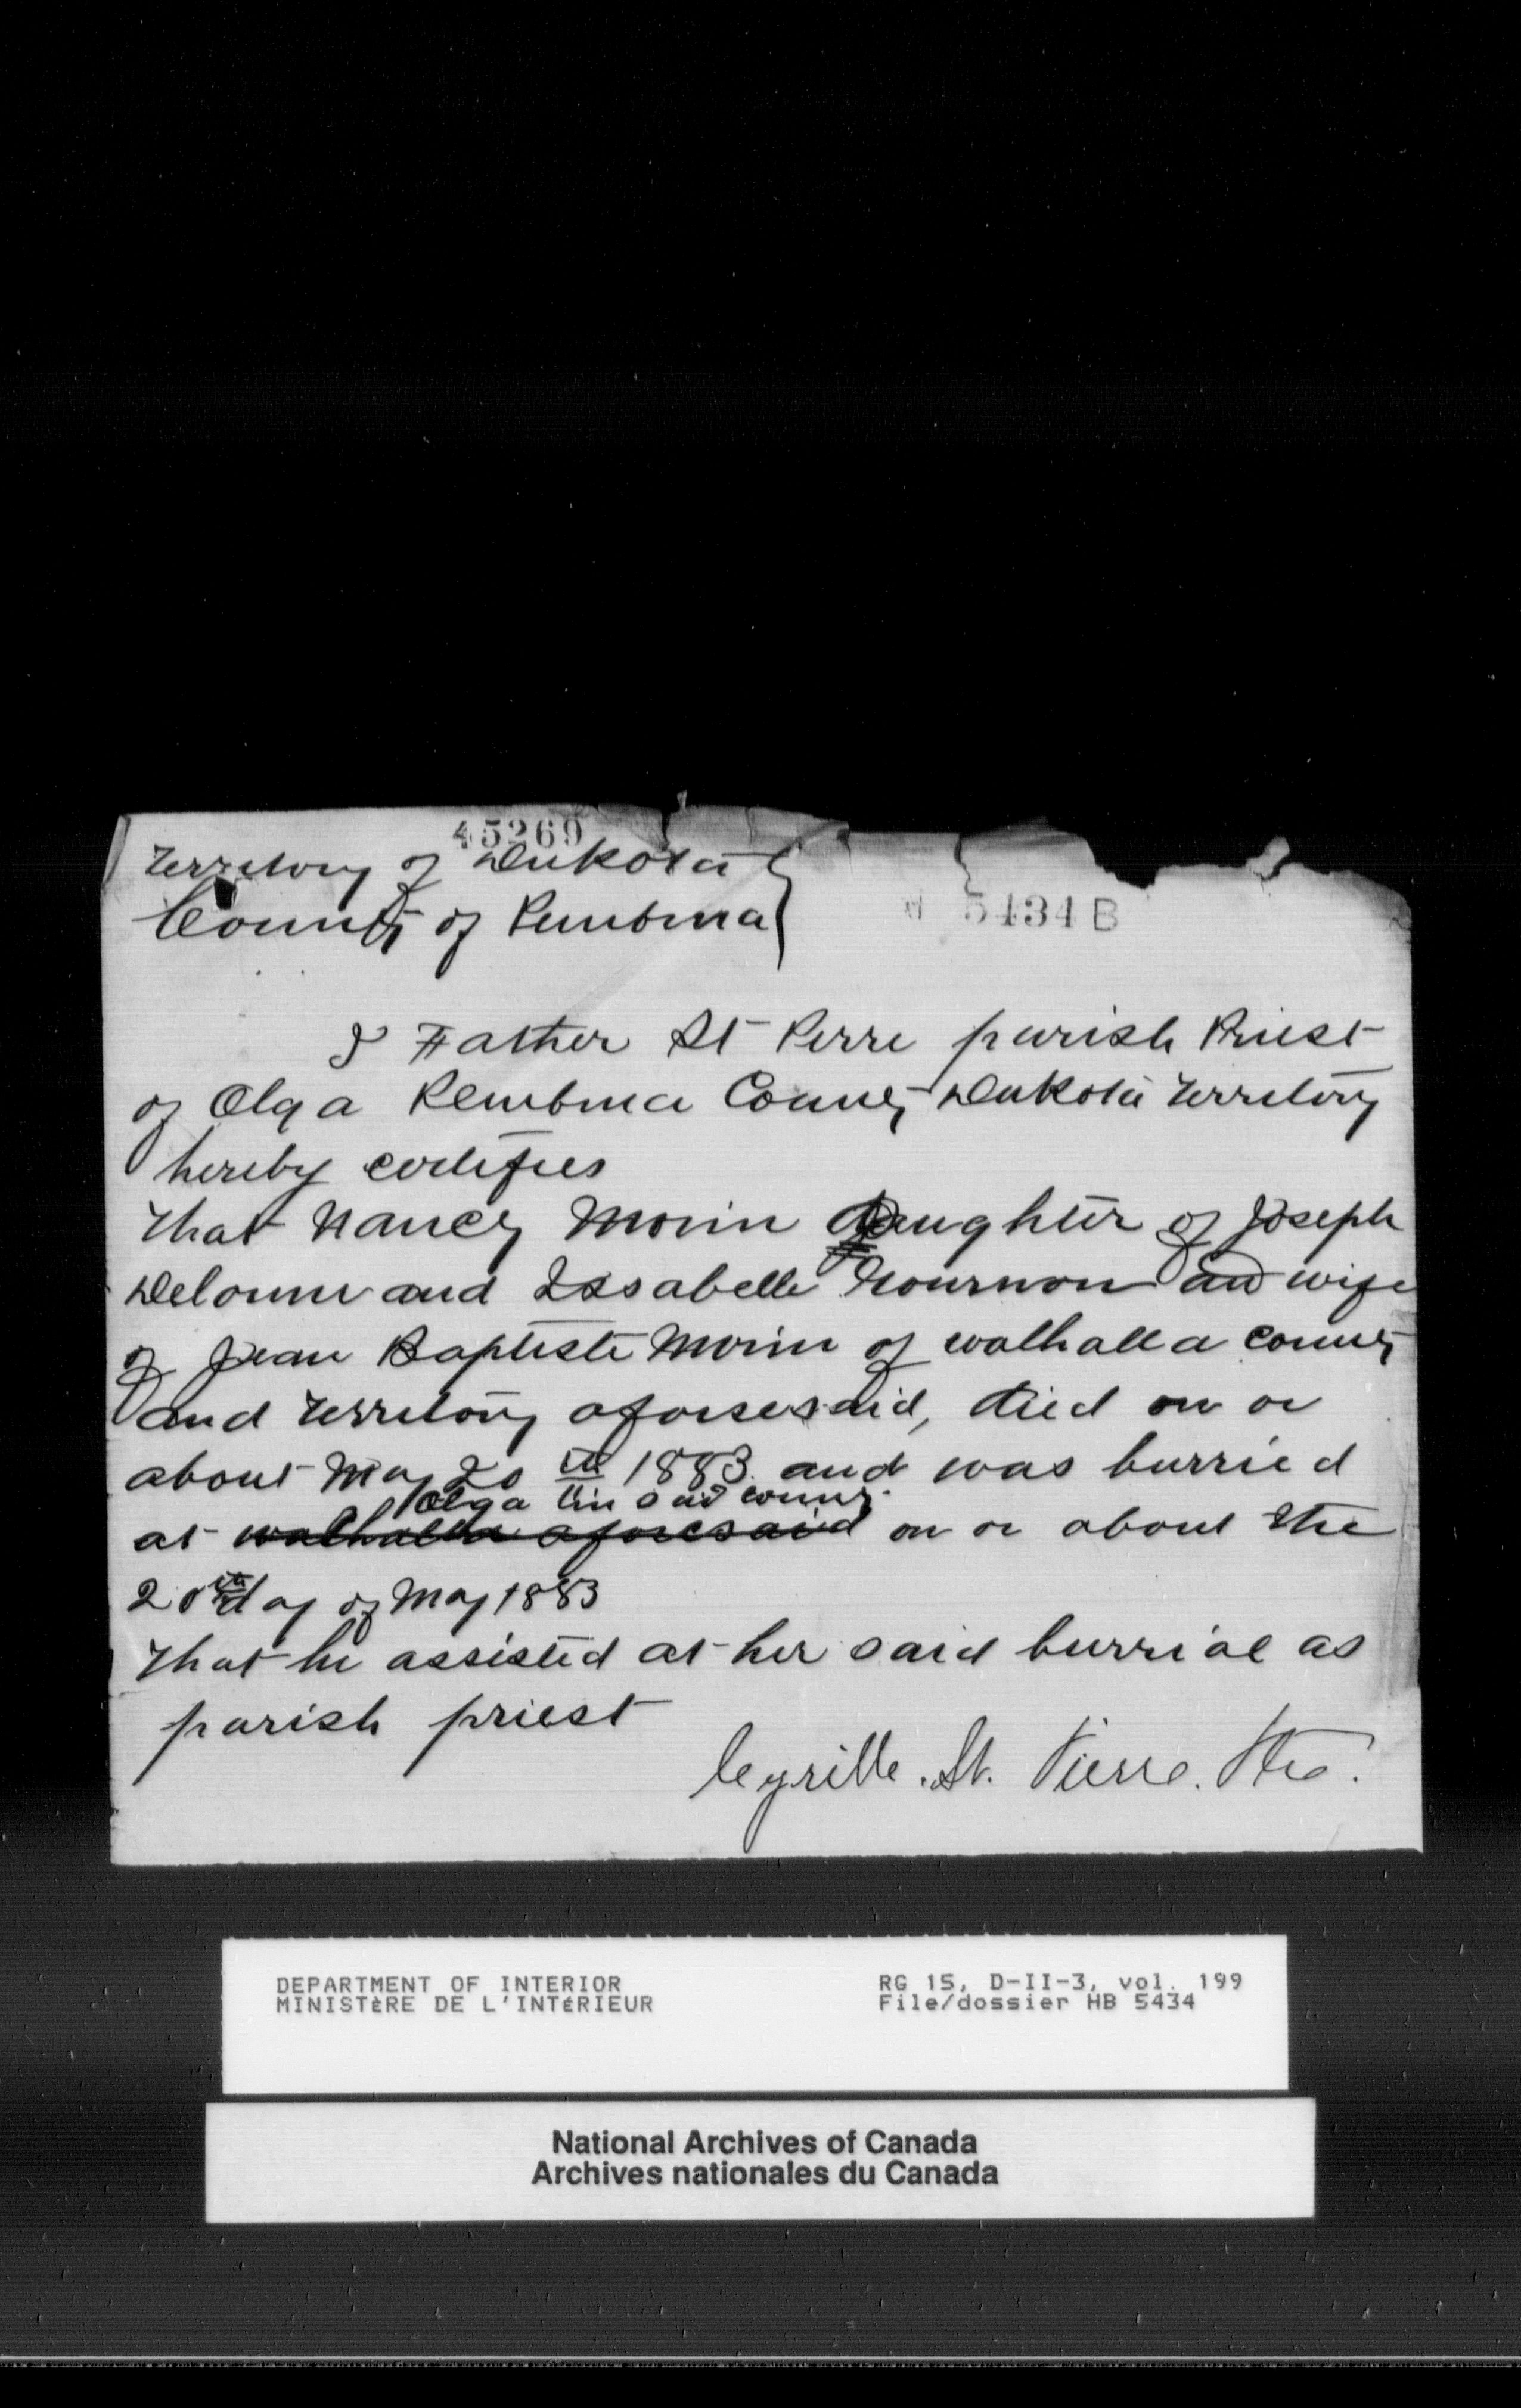 45269
Territory of Dakota
County of Pembina
5434 B
I Father St Perre parish Priest
of Olga Pembina County Dakota Territory
hereby certifies
that Nancy Morin daughter of Joseph
Delorme and Issabelle Gournon and wife
of Jean Baptiste Morin of walhalla County
and Territory aforesesaid, died on or
about May 20 th 1883 and was burried
Olga in said county
at walhalla aforesaid on or about the
20th day of May 1883
that he assisted at her said burrial as
parish priest
Cyrille. St. Pierre. Ptre.
DEPARTMENT OF INTERIOR
MINISTÈRE DE L'INTÉRIEUR
RG 15, D-II-3, vol. 199
File/dossier HB 5434
National Archives of Canada
Archives nationales du Canada